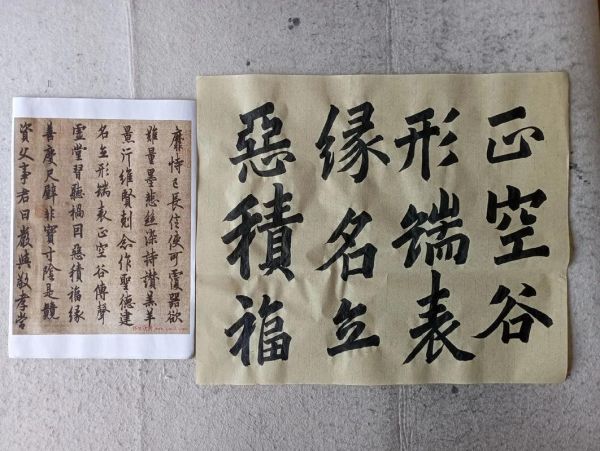 靡恃己長信使可覆器欲
難量墨悲絲染詩讚羔羊
景行維賢剋念作聖德建
名立形端表正空谷傳聲
虛堂習聽禍因惡積福緣
善慶尺璧非寶寸陰是競
資父事君曰嚴與敬孝當
正空谷
形端表
緣名立
惡積福